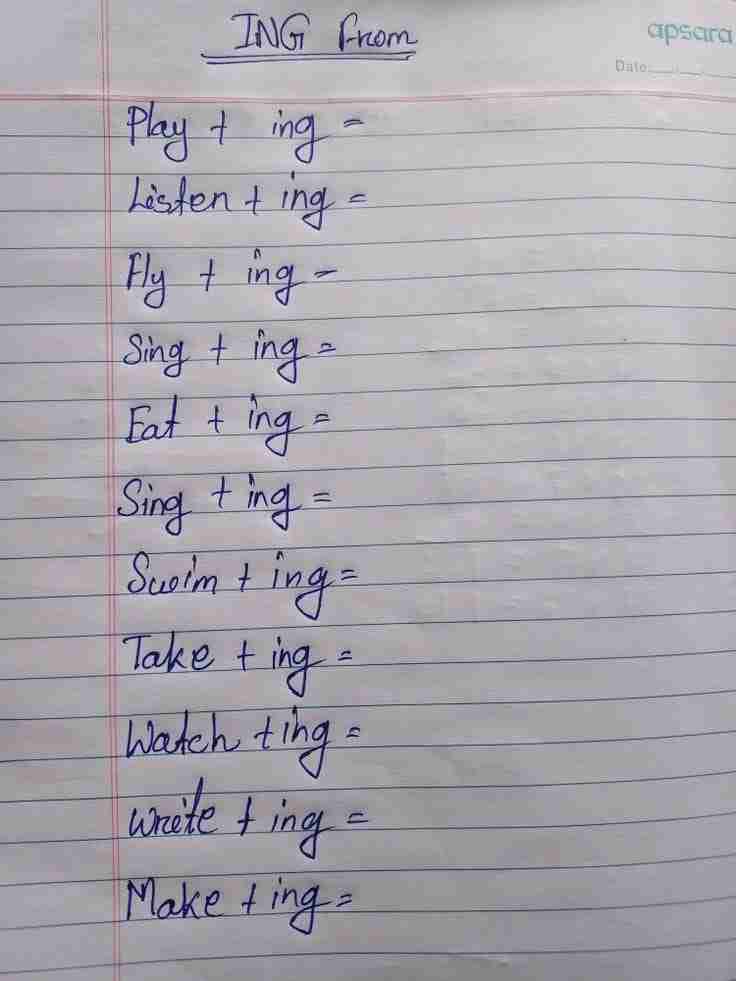 ING From
apsara
Date:
Play + ing =
Listen + ing =
Fly + ing -
Sing + ing =
Eat + ing =
Sing + ing =
Swim + ing =
Take + ing =
Watch + ing =
Write + ing =
Make + ing =